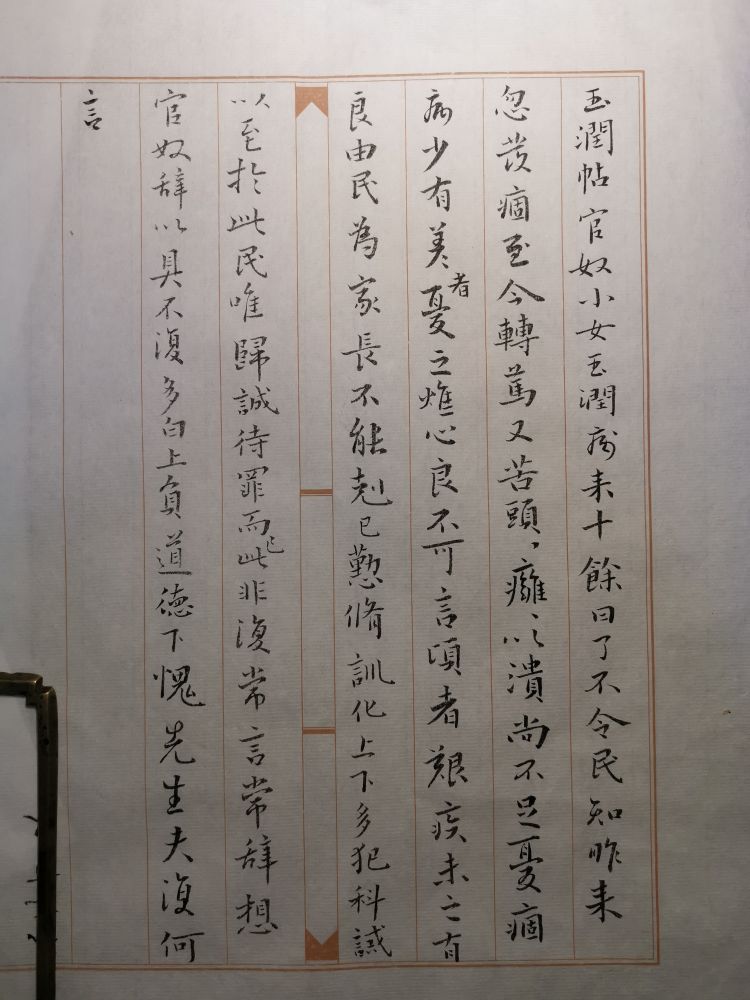 玉潤帖官奴小女玉潤病来十餘日了不令民知昨来
忽發痼至今轉篤又苦頭ヽ癰ヽ以潰尚不足憂痼
病少有差者憂之燋心良不可言頃者艱疾未之有
良由民為家長不能剋己懃脩訓化上下多犯科誡
以至於此民唯歸誠待罪而已此非復常言常辞想
官奴辞以具不復多白上負道德下愧先生夫復何
言